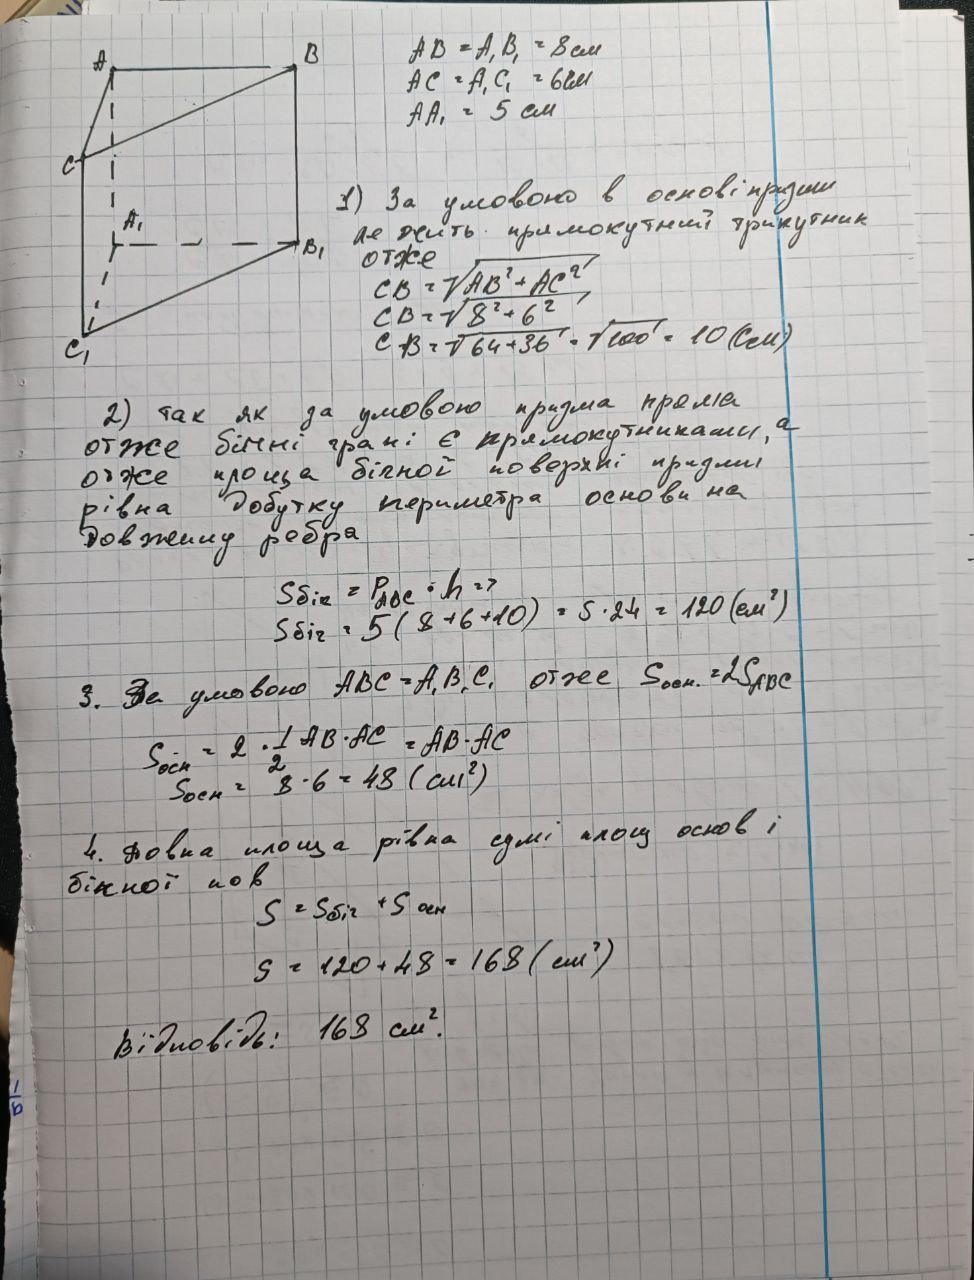 A
B
C
A₁
B₁
C₁
AB = A₁B₁ = 8 см
AC = A₁C₁ = 6 см
AA₁ = 5 см
1) За умовою в основі призми
лежить прямокутний трикутник
отже
CB = √AB² + AC²
CB = √8² + 6²
CB = √64+36 = √100 = 10 (см)
2) так як за умовою призма пряма
отже бічні грані є прямокутниками, а
отже площа бічної поверхні призми
рівна добутку периметра основи на
довжину ребра
Sбіч = P ABC · h =>
Sбіч = 5 ( 8+6+10) = 5·24 = 120 (см²)
3. За умовою ABC = A₁B₁C₁ отже Sосн. = 2S ABC
Sосн = 2 · 1/2 AB·AC = AB·AC
Sосн = 8·6 = 48 (см²)
4. Повна площа рівна сумі площ основ і
бічної пов
S = Sбіч + Sосн
S = 120 + 48 = 168 (см²)
Відповідь: 168 см².